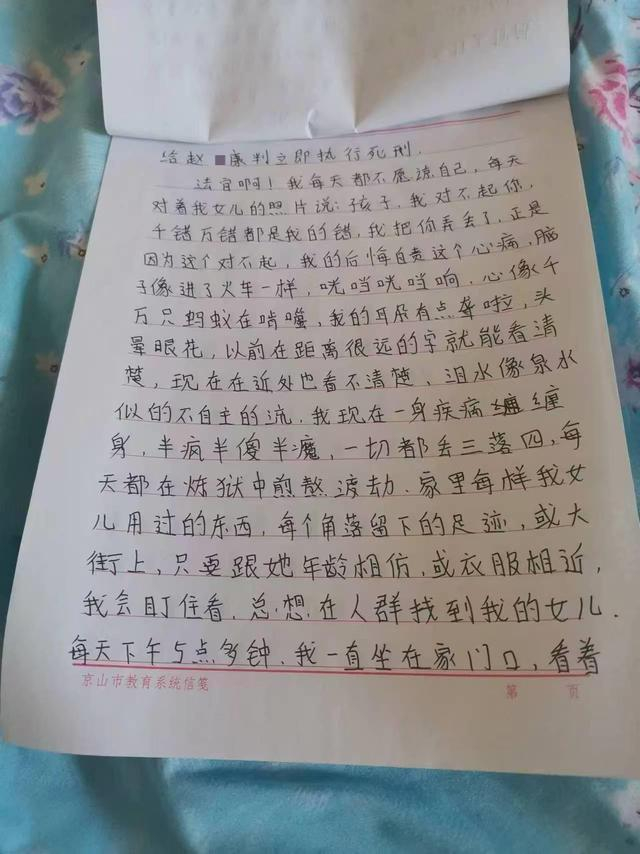 给赵■康判立即执行死刑.
法官啊！我每天都不愿谅自己，每天
对着我女儿的照片说：孩子，我对不起你，
千错万错都是我的错，我把你弄丢了，正是
因为这个对不起，我的后悔自责这个心痛，脑
子像进了火车一样，咣当咣当响，心像千
万只蚂蚁在啃噬，我的耳朵有点聋啦，头
晕眼花，以前在距离很远的字就能看清
楚，现在在近处也看不清楚、泪水像泉水
似的不自主的流.我现在一身疾病缠缠
身，半疯半傻半魔，一切都丢三落四，每
天都在炼狱中煎熬渡劫.家里每样我女
儿用过的东西，每个角落留下的足迹，或大
街上，只要跟她年龄相仿，或衣服相近，
我会盯住看，总想在人群找到我的女儿.
每天下午5点多钟、我一直坐在家门口，看着
京山市教育系统信笺 第 页